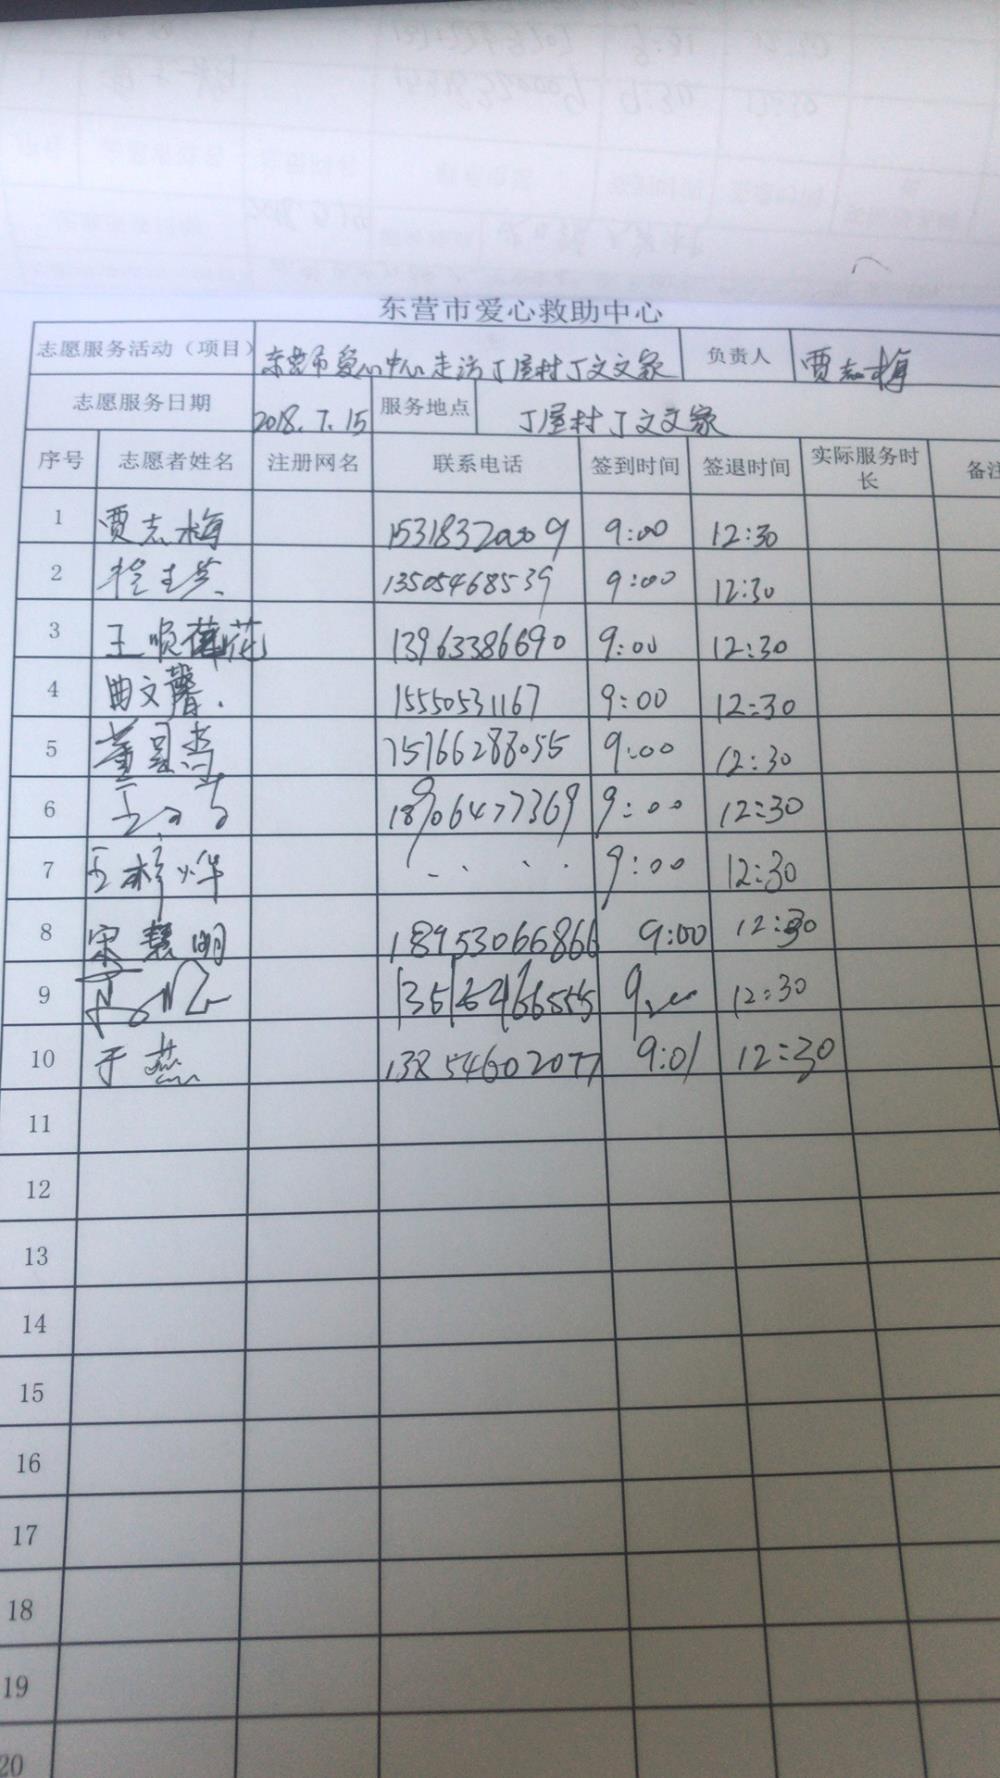 东营市爱心救助中心
志愿服务活动（项目） 东营市爱心中心走访丁屋村丁文文家 负责人 贾志梅
志愿服务日期 2018.7.15 服务地点 丁屋村丁文文家
序号 志愿者姓名 注册网名 联系电话 签到时间 签退时间 实际服务时长 备注
1 贾志梅 15318320009 9:00 12:30
2 13505468539 9:00 12:30
3 王顺花 13963386690 9:00 12:30
4 曲文馨. 15550531167 9:00 12:30
5 董 15766288055 9:00 12:30
6 18906477369 9:00 12:30
7 王梓烨 9:00 12:30
8 宋慧明 18953066866 9:00 12:30
9 12:30
10 于燕 13854602077 9:01 12:30
11
12
13
14
15
16
17
18
19
20